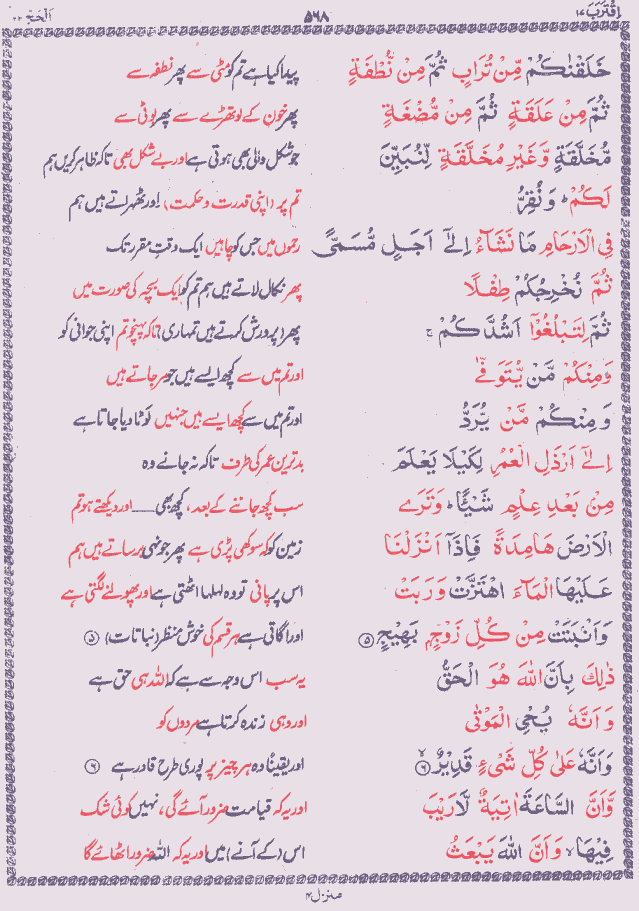 اِقْتَرَبَ ۱۷ ۵۶۸ اَلْحَجّ ۲۲
خَلَقْنٰكُمْ مِّنْ تُرَابٍ ثُمَّ مِنْ نُّطْفَةٍ پیدا کیا ہے تم کو مٹی سے پھر نطفہ سے
ثُمَّ مِنْ عَلَقَةٍ ثُمَّ مِنْ مُّضْغَةٍ پھر خون کے لوتھڑے سے پھر بوٹی سے
مُّخَلَّقَةٍ وَّغَيْرِ مُخَلَّقَةٍ لِّنُبَيِّنَ جو شکل والی بھی ہوتی ہے اور بے شکل بھی تاکہ ظاہر کریں ہم
لَكُمْ ؕ وَنُقِرُّ تم پر (اپنی قدرت و حکمت) اور ٹھہراتے ہیں ہم
فِي الْاَرْحَامِ مَا نَشَآءُ اِلٰٓى اَجَلٍ مُّسَمًّى رحموں میں جس کو چاہیں ایک وقتِ مقرر تک
ثُمَّ نُخْرِجُكُمْ طِفْلًا پھر نکال لاتے ہیں ہم تم کو ایک بچہ کی صورت میں
ثُمَّ لِتَبْلُغُوْٓا اَشُدَّكُمْ ۚ پھر (پرورش کرتے ہیں تمہاری) تاکہ پہنچو تم اپنی جوانی کو
وَمِنْكُمْ مَّنْ يُّتَوَفّٰى اور تم میں سے کچھ ایسے ہیں جو مر جاتے ہیں
وَمِنْكُمْ مَّنْ يُّرَدُّ اور تم میں سے کچھ ایسے ہیں جنہیں لوٹا دیا جاتا ہے
اِلٰٓى اَرْذَلِ الْعُمُرِ لِكَيْلَا يَعْلَمَ بدترین عمر کی طرف تاکہ نہ جانے وہ
مِنْۢ بَعْدِ عِلْمٍ شَيْـًٔا ؕ وَتَرَى سب کچھ جاننے کے بعد، کچھ بھی ــــ اور دیکھتے ہو تم
الْاَرْضَ هَامِدَةً فَاِذَآ اَنْزَلْنَا زمین کو کہ سوکھی پڑی ہے پھر جونہی برساتے ہیں ہم
عَلَيْهَا الْمَآءَ اهْتَزَّتْ وَرَبَتْ اس پر پانی تو وہ لہلہا اٹھتی ہے اور پھولنے لگتی ہے
وَاَنْۢبَتَتْ مِنْ كُلِّ زَوْجٍۭ بَهِيْجٍ ۝۵ اور اگاتی ہے ہر قسم کی خوش منظر (نباتات) ۝۵
ذٰلِكَ بِاَنَّ اللّٰهَ هُوَ الْحَقُّ یہ سب اس وجہ سے ہے کہ اللہ ہی حق ہے
وَاَنَّهٗ يُحْيِ الْمَوْتٰى اور وہی زندہ کرتا ہے مردوں کو
وَاَنَّهٗ عَلٰى كُلِّ شَيْءٍ قَدِيْرٌ ۝۶ اور یقیناً وہ ہر چیز پر پوری طرح قادر ہے ۝۶
وَّاَنَّ السَّاعَةَ اٰتِيَةٌ لَّا رَيْبَ اور یہ کہ قیامت ضرور آئے گی، نہیں کوئی شک
فِيْهَا ۙ وَاَنَّ اللّٰهَ يَبْعَثُ اس (کے آنے) میں اور یہ کہ اللہ ضرور اٹھائے گا
منزل ۴